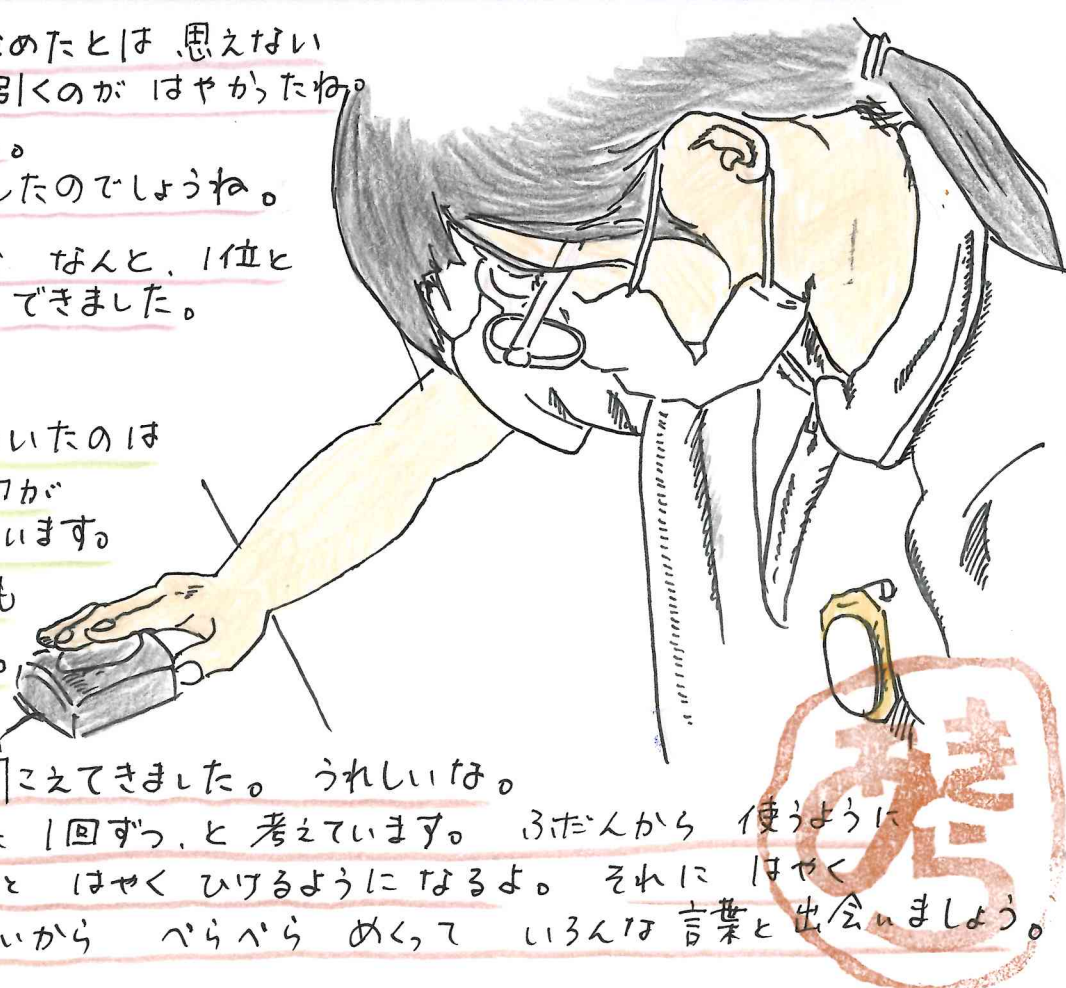 めたとは 思えない
引くのが はやかったね。
。
したのでしょうね。
なんと、1位と
できました。
いたのは
が
います。
も
。
こえてきました。 うれしいな。
1回ずつ、と 考えています。 ふだんから 使うように
と はやく ひけるように なるよ。 それに はやく
いから ぺらぺら めくって いろんな 言葉と 出会いましょう。
あきら